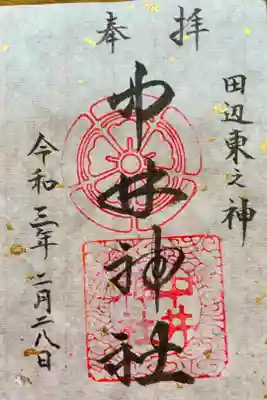 奉拝
田辺東之神
中井神社
令和三年二月二八日
中井
神社